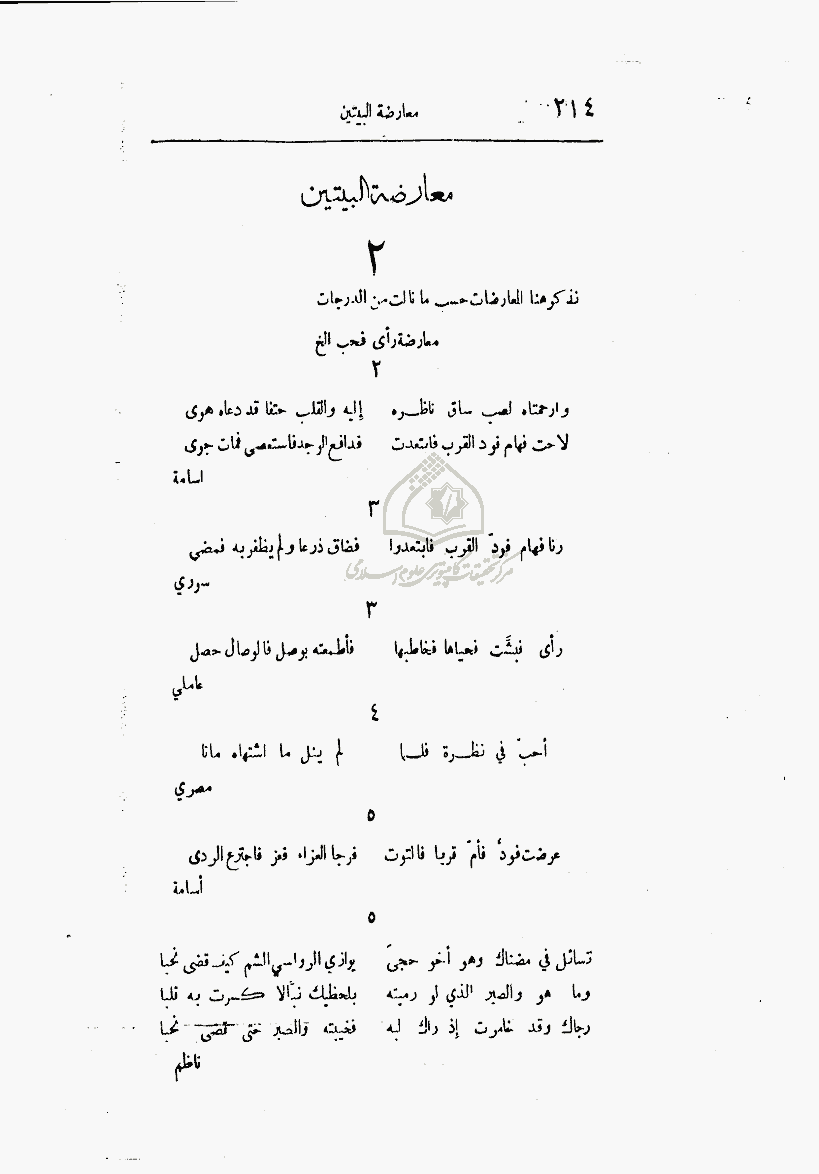 ٢١٤ معارضة البيتين
معارضة البيتين
٢
نذكر هنا المعارضات حسب ما نالت من الدرجات
معارضة رأى فحب الخ
٢
وارحمتاه لصب ساق ناظـــره إليه والقلب حتفا قد دعاه هوى
لاحت فهام فود القرب فابتعدت فدافع الوجد فاستعصى فمات جوى
اسامة
٣
رنا فهام فودّ القرب فابتعدوا فضاق ذرعا ولم يظفر به فمضي
سوري
٣
رأى فبشَّت فحياها فخاطبها فأطمعته بوصل فالوصال حصل
عاملي
٤
أحبّ في نظــرة فلــما لم ينل ما اشتهاه ماتا
مصري
٥
عرضت فودّ فأمّ قربا فالتوت فرجا العزاء فعز فاجترع الردى
أسامة
٥
تسائل في مضناك وهو أخو حجىً يوازي الرواسي الشم كيف قضى نحبا
وما هو والصبر الذي لو رميته بلحظيك نبّالا كسرت به قلبا
رجاك وقد خامرت إذ راك لبه فخيبته والصبر حتى قضى نحبا
ناظم
مركز تحقيقات كامپيوترى علوم اسلامى